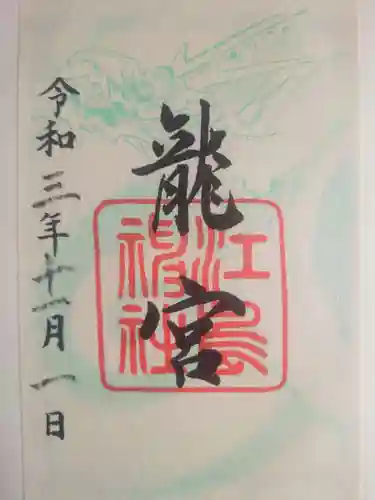 龍宮
江島神社
令和三年十一月一日